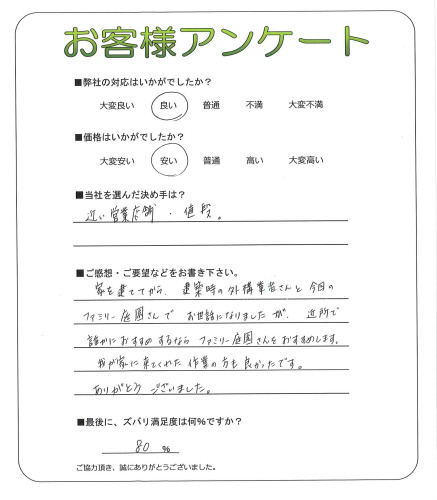 お客様アンケート
■弊社の対応はいかがでしたか?
大変良い 良い 普通 不満 大変不満
■価格はいかがでしたか?
大変安い 安い 普通 高い 大変高い
■当社を選んだ決め手は?
近い営業店舗・値段。
■ご感想・ご要望などをお書き下さい。
家を建ててから、建築時の外構業者さんと今回の
ファミリー庭園さんで お世話になりましたが、近所で
誰かにおすすめするなら ファミリー庭園さんをおすすめします。
我が家に来てくれた 作業の方も良かったです。
ありがとう ございました。
■最後に、ズバリ満足度は何%ですか?
80 %
ご協力頂き、誠にありがとうございました。